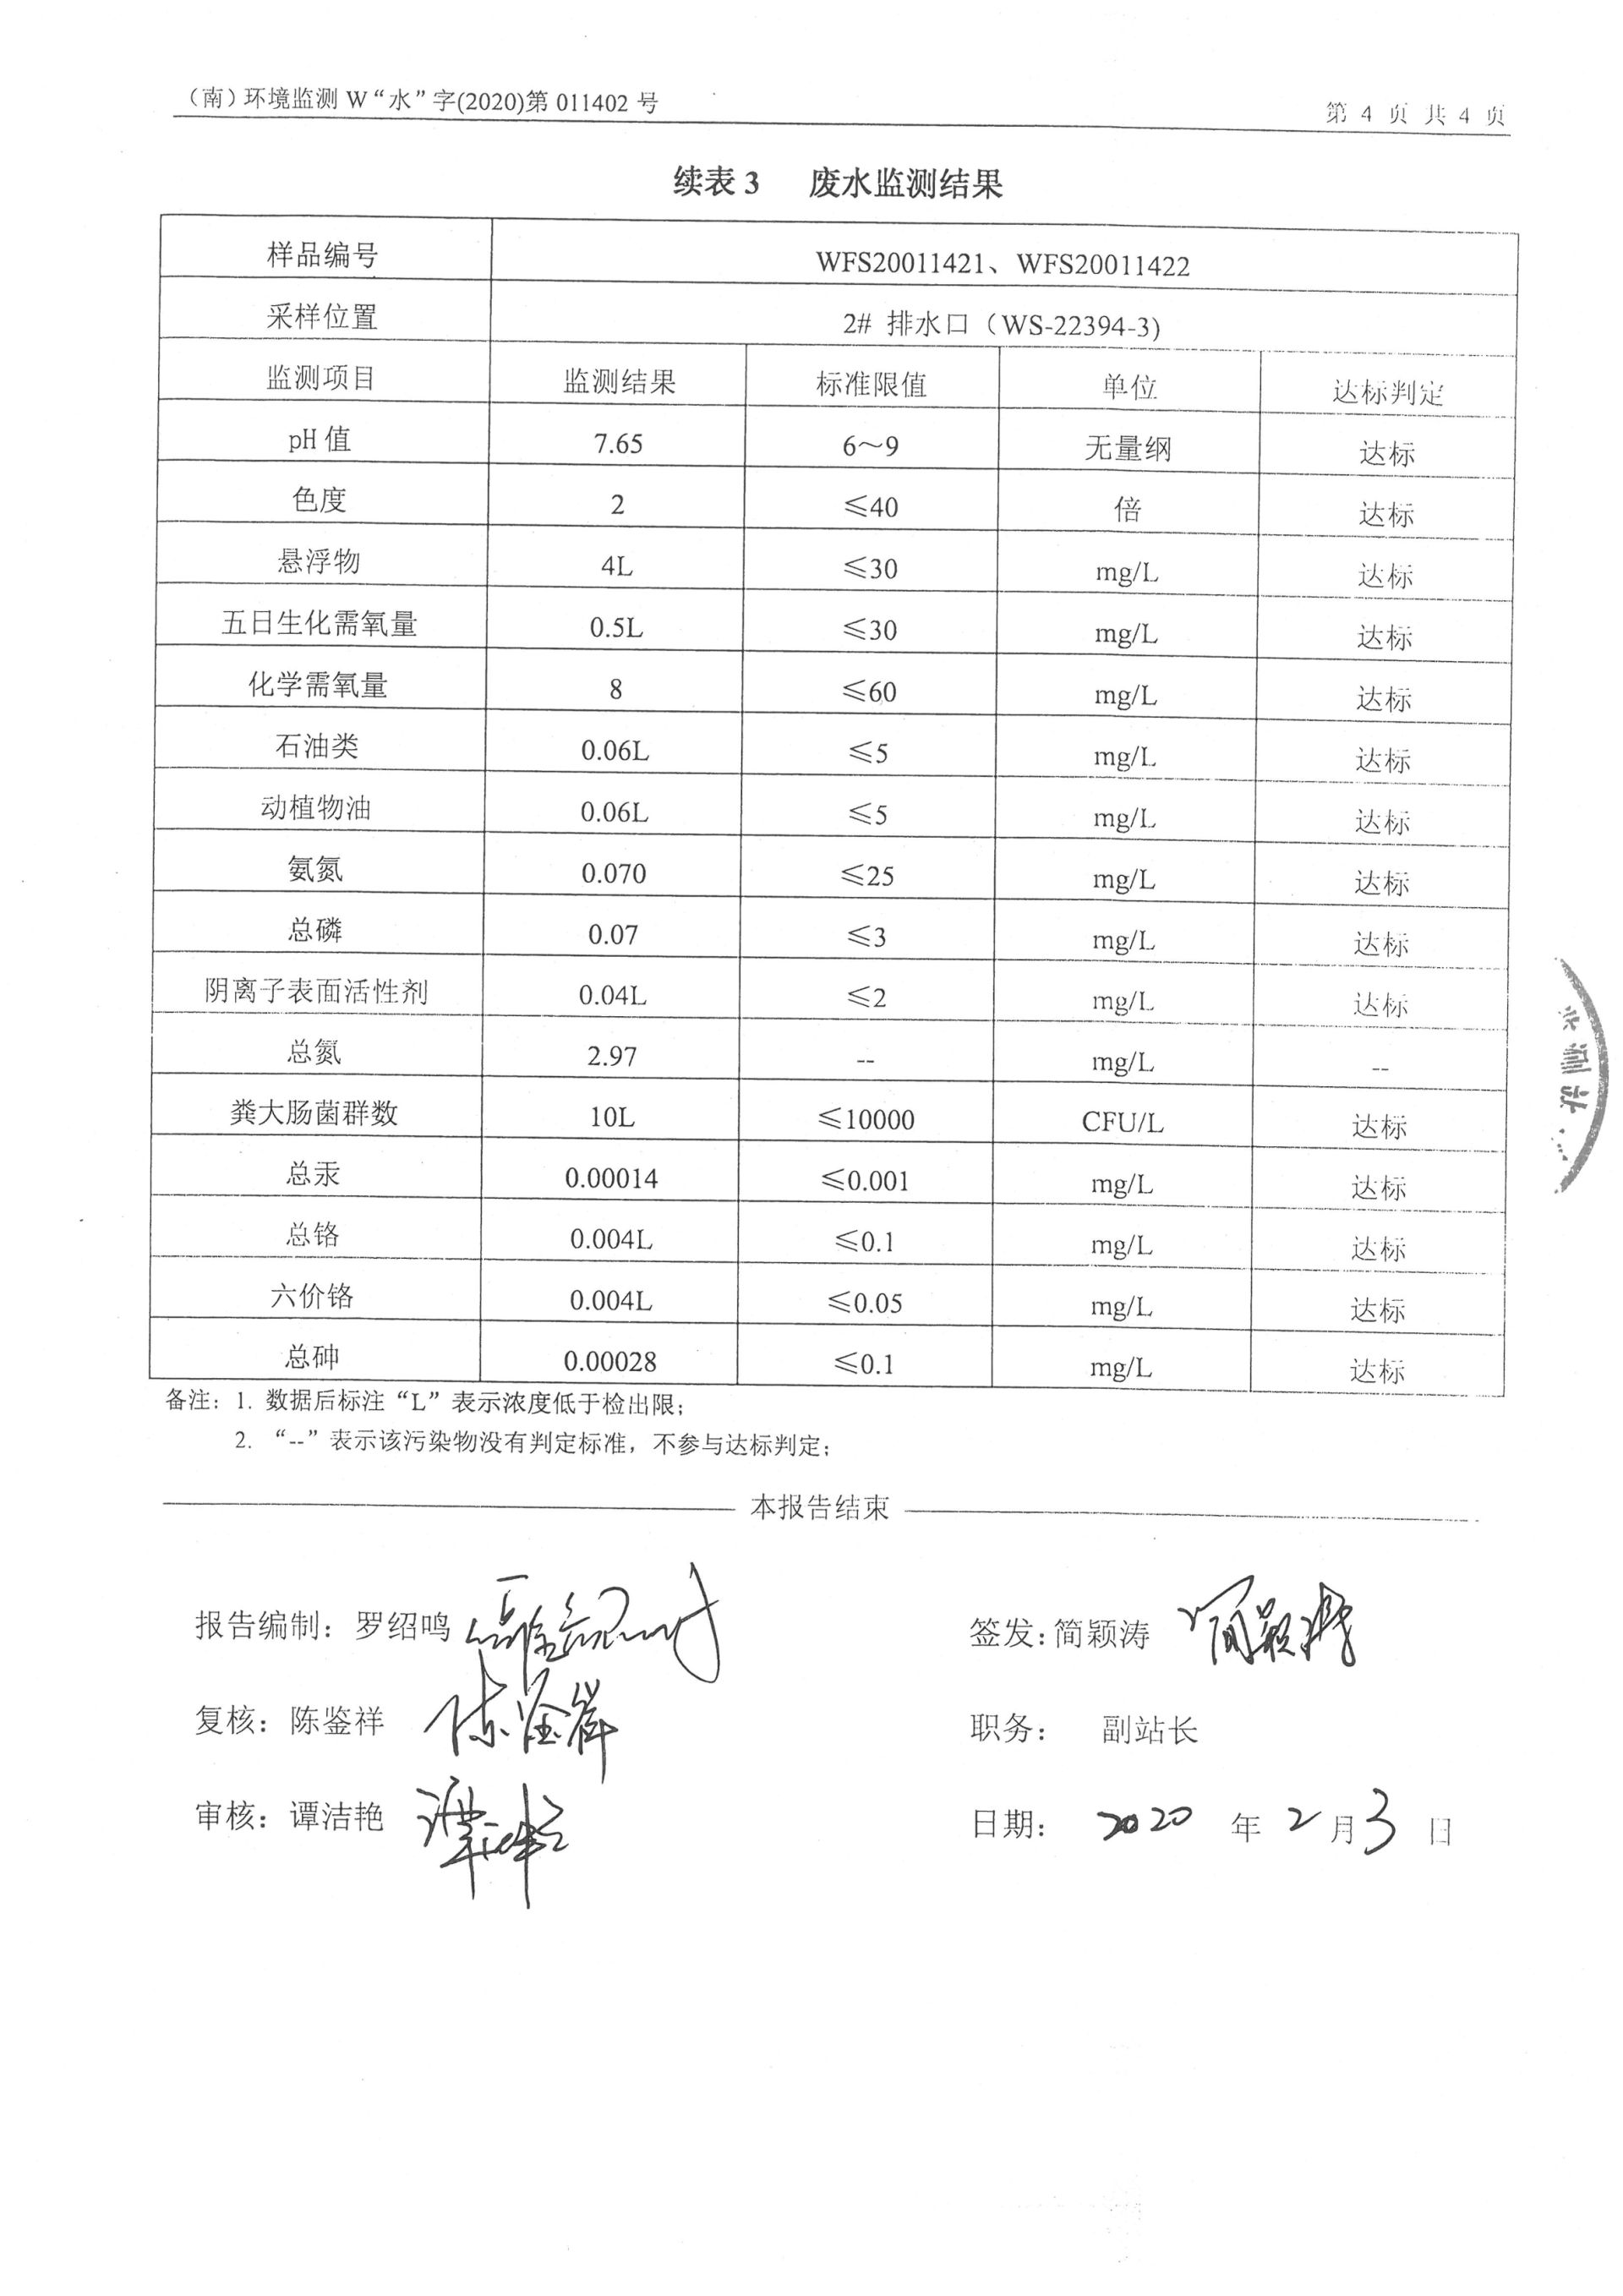 （南）环境监测 W“水”字(2020)第 011402 号
第 4 页 共 4 页
续表 3 废水监测结果
样品编号 WFS20011421、WFS20011422
采样位置 2# 排水口（WS-22394-3)
监测项目 监测结果 标准限值 单位 达标判定
pH 值 7.65 6～9 无量纲 达标
色度 2 ≤40 倍 达标
悬浮物 4L ≤30 mg/L 达标
五日生化需氧量 0.5L ≤30 mg/L 达标
化学需氧量 8 ≤60 mg/L 达标
石油类 0.06L ≤5 mg/L 达标
动植物油 0.06L ≤5 mg/L 达标
氨氮 0.070 ≤25 mg/L 达标
总磷 0.07 ≤3 mg/L 达标
阴离子表面活性剂 0.04L ≤2 mg/L 达标
总氮 2.97 -- mg/L --
粪大肠菌群数 10L ≤10000 CFU/L 达标
总汞 0.00014 ≤0.001 mg/L 达标
总铬 0.004L ≤0.1 mg/L 达标
六价铬 0.004L ≤0.05 mg/L 达标
总砷 0.00028 ≤0.1 mg/L 达标
备注：1. 数据后标注“L”表示浓度低于检出限；
2. “--”表示该污染物没有判定标准，不参与达标判定；
本报告结束
报告编制：罗绍鸣 罗绍鸣
签发：简颖涛 简颖涛
复核：陈鉴祥 陈鉴祥
职务： 副站长
审核：谭洁艳 谭洁艳
日期： 2020 年 2 月 3 日